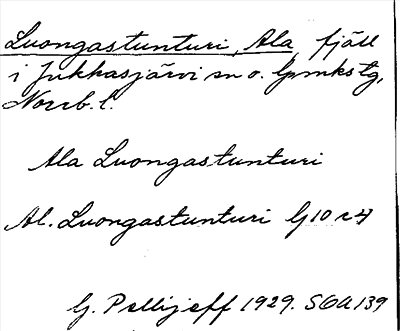 Luongastunturi, Ala, fjäll
i Jukkasjärvi sn o. lpmkstg,
Norrb. l.
Ala Luongastunturi
Al. Luongastunturi G10c4
G. Pellijeff 1929. SOA 139